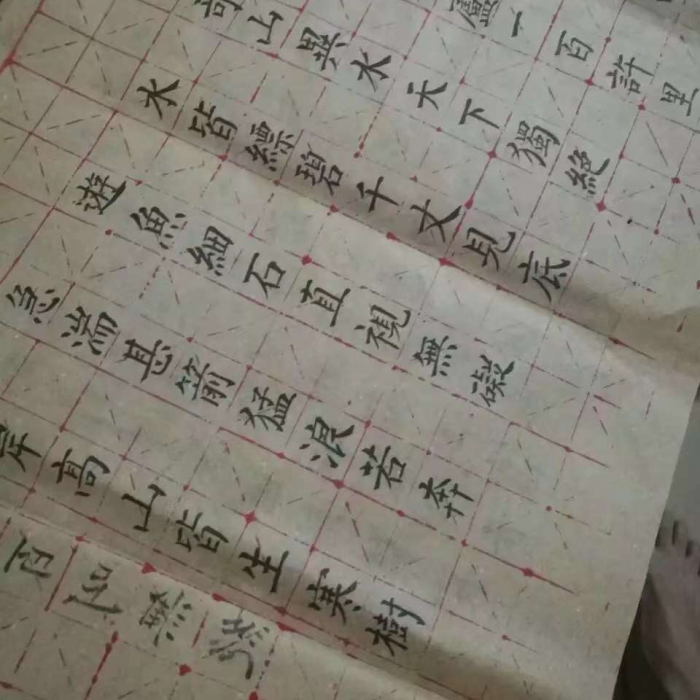 廬一百許里
奇山異水天下獨絕
水皆縹碧千丈見底
遊魚細石直視無礙
急湍甚箭猛浪若奔
岸高山皆生寒樹
百叫無絕